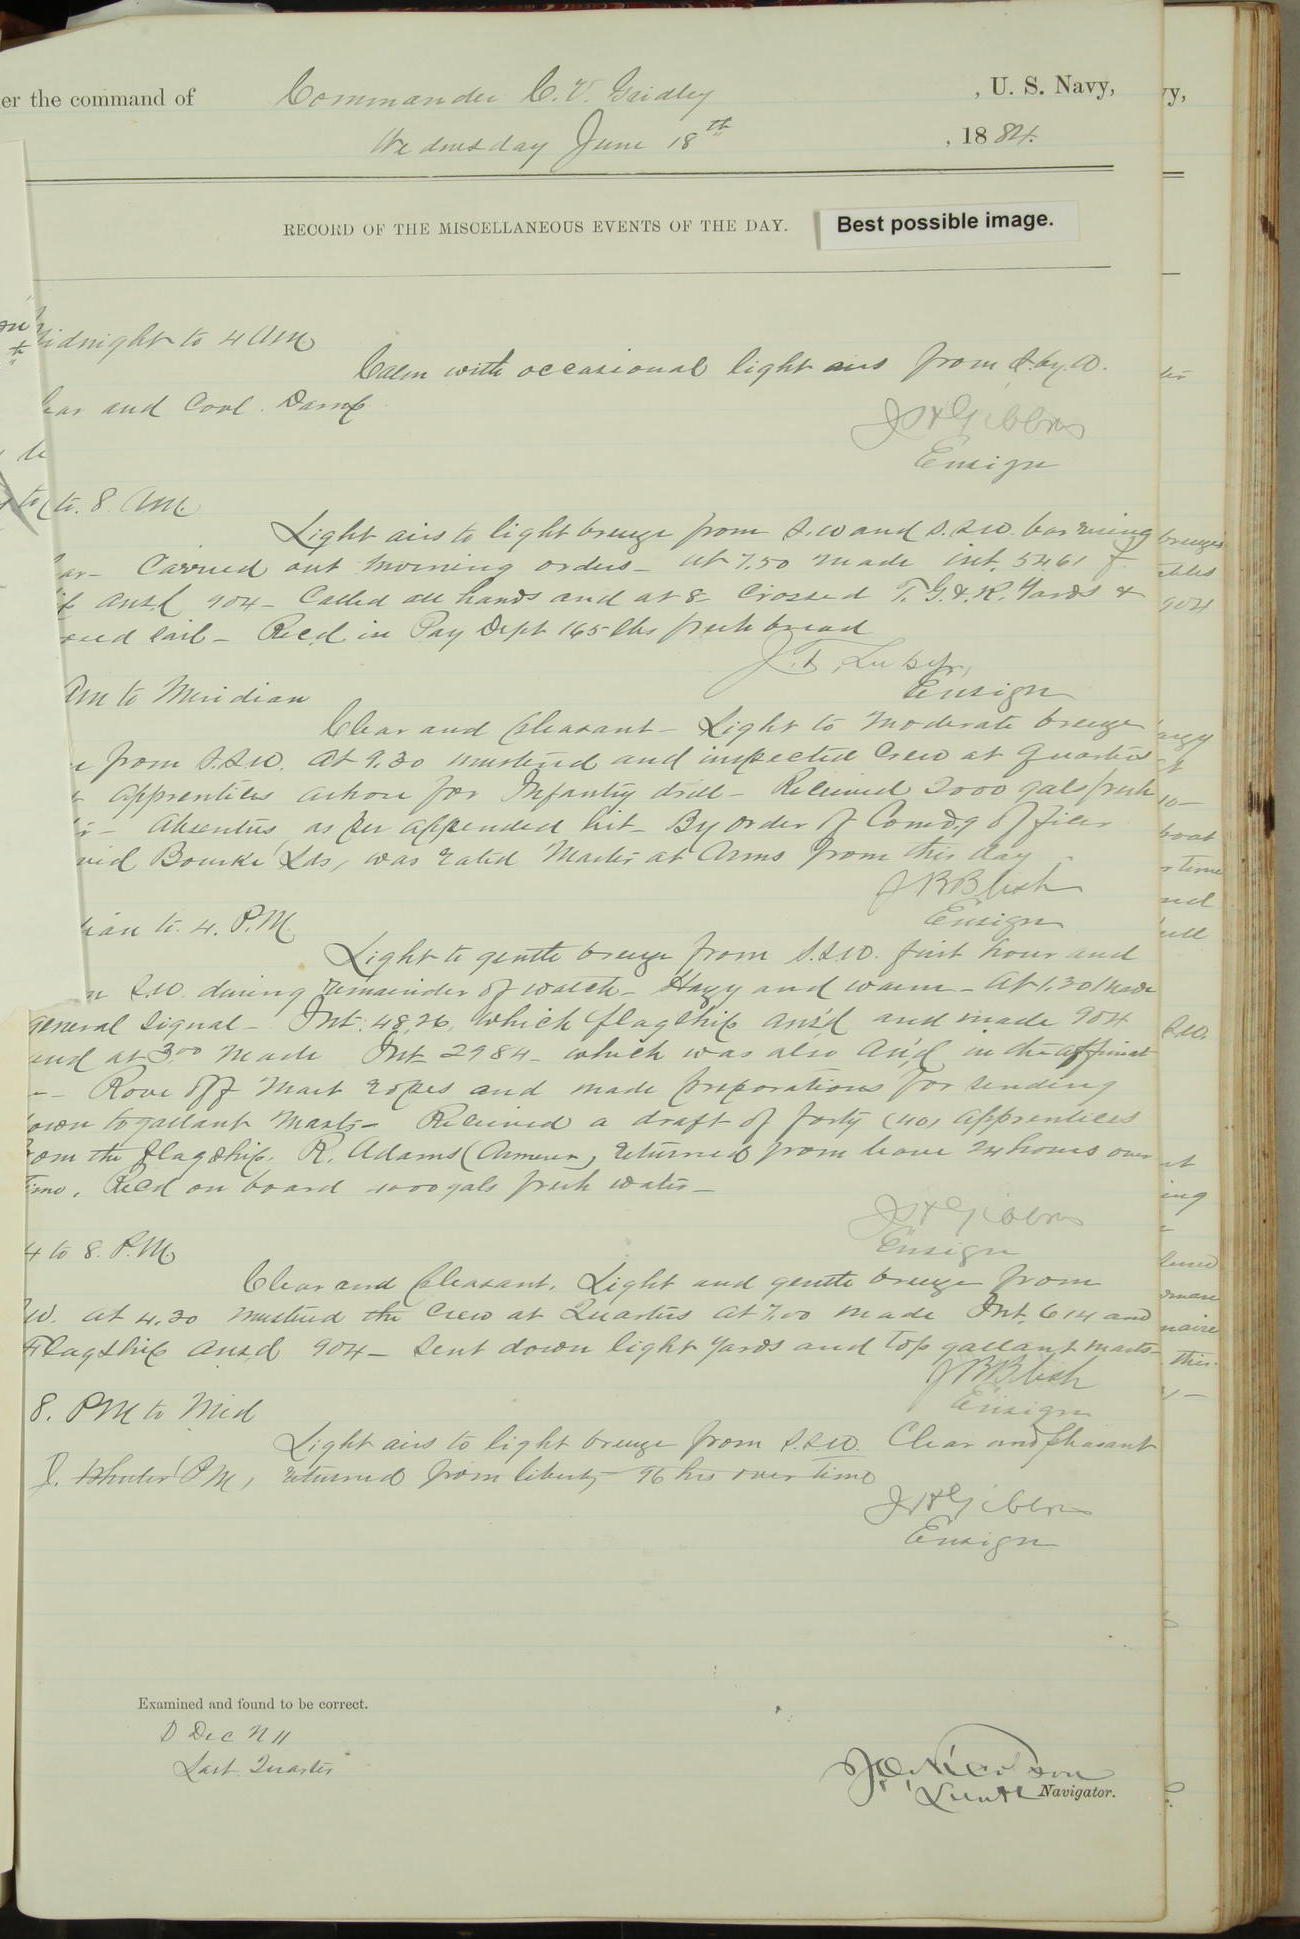 er the command of Commander C. V. Gridley , U. S. Navy,
Wednesday June 18th , 1884.
RECORD OF THE MISCELLANEOUS EVENTS OF THE DAY.
Best possible image.
idnight to 4 AM
Calm with occasional light airs from S. by W.
ear and Cool. Damp
J H Gibbons
Ensign
to 8. AM.
Light airs to light breeze from S.W and S.S.W. bar rising
ar - Carried out morning orders - At 7.50 made int. 5461
ansd 904 - Called all hands and at 8 Crossed T. G. & R. Yards &
sed sail - Recd in Pay Dept 165 lbs fresh bread
Ensign
AM to Meridian
Clear and pleasant - Light to moderate breeze
from S.S.W. At 9.30 mustered and inspected Crew at Quarters
Apprentices ashore for Infantry drill - Received 2000 gals fresh
- Absentees as per appended list - By order of Comdg officer
vid Bourke Lds, was rated Master at Arms from this day
J B Blish
Ensign
ian to 4. P.M.
Light to gentle breeze from S.S.W. first hour and
S.W. during remainder of watch - Hazy and warm - At 1.30 made
general signal - Int. 4826, which flagship ans'd and made 904
and at 3.00 made Int 2984 - which was also An'd in the affirmat
- Rove off mast ropes and made preparations for sending
own togallant masts - Received a draft of forty (40) apprentices
om the flagship. R. Adams (Armorer) returned from leave 24 hours over
time. Recd on board 4000 gals fresh water -
J H Gibbons
Ensign
4 to 8. P.M
Clear and pleasant. Light and gentle breeze from
W. At 4.30 mustered the Crew at Quarters At 7.00 made Int. 614 and
Flagship ansd 904 - Sent down light yards and top gallant masts -
J B Blish
Ensign
8. PM to Mid
Light airs to light breeze from S.S.W. Clear and pleasant
J. (P M), returned from liberty 96 hrs over time
J H Gibbons
Ensign
Examined and found to be correct.
D Dec N 11
Last Quarter
Lieut Navigator.